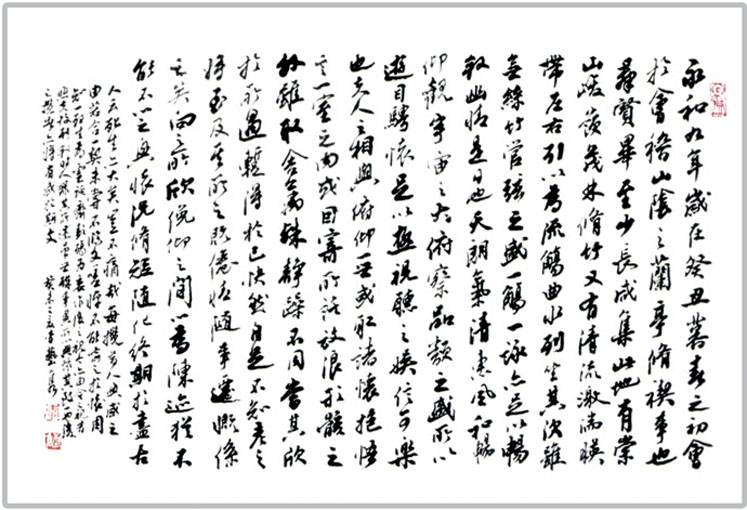 永和九年歲在癸丑暮春之初會
於會稽山陰之蘭亭脩禊事也
羣賢畢至少長咸集此地有崇
山峻嶺茂林脩竹又有清流激湍暎
帶左右引以為流觴曲水列坐其次雖
無絲竹管弦之盛一觴一詠亦足以暢
敘幽情是日也天朗氣清惠風和暢
仰觀宇宙之大俯察品類之盛所以
遊目騁懷足以極視聽之娛信可樂
也夫人之相與俯仰一世或取諸懷抱悟
言一室之內或因寄所託放浪形骸之
外雖取舍萬殊靜躁不同當其欣
於所遇暫得於己快然自足不知老之
將至及其所之既倦情隨事遷慨係
之矣向之所欣俛仰之間以為陳迹猶不
能不以之興懷況脩短隨化終期於盡古
人云死生亦大矣豈不痛哉每攬昔人興感之
由若合一契未嘗不臨文嗟悼不能喻之於懷固
知一死生為虛誕齊彭殤為妄作後之視今亦由今之視昔
悲夫故列敘時人錄其所述雖世殊事異所以興懷其致一也後
之攬者亦將有感於斯文 癸未之